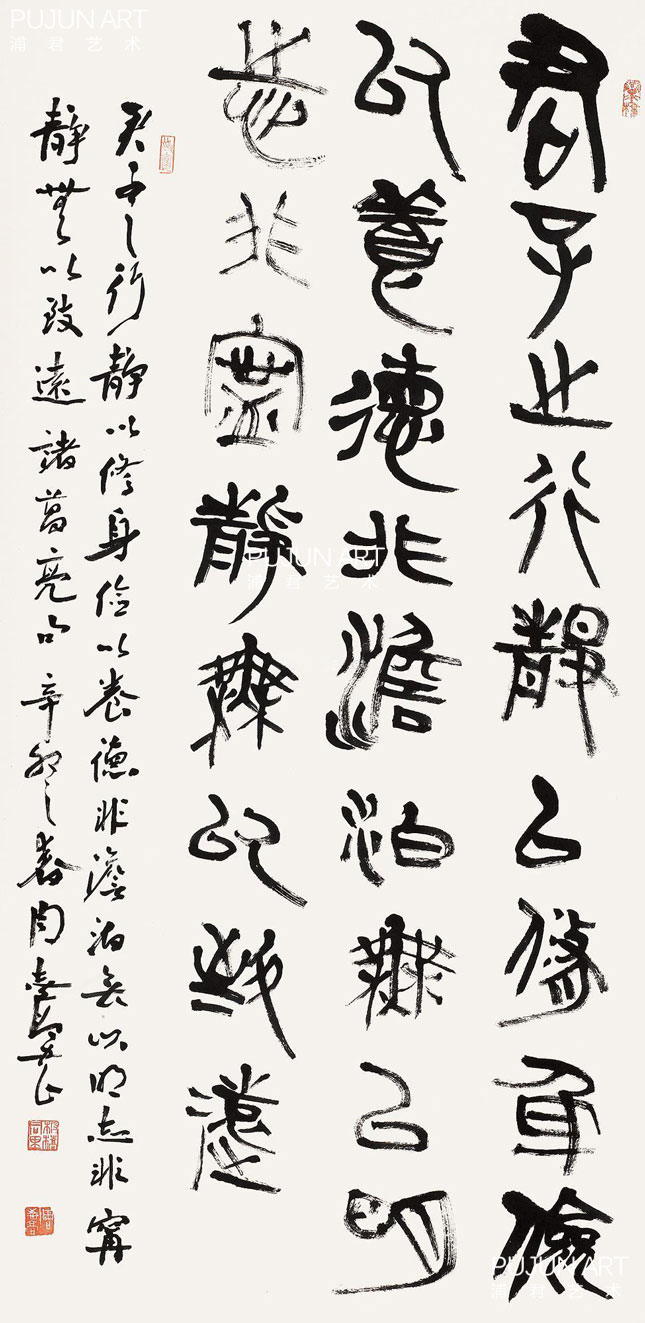 PUJUN ART
浦君艺术
君子之行靜以修身儉
以養德非澹泊無以明
志非寧靜無以致遠
君子之行靜以修身儉以養德非澹泊無以明志非寧
靜無以致遠 諸葛亮句 辛卯之春周
PUJUN ART
浦君艺术
PUJUN ART
浦君艺术